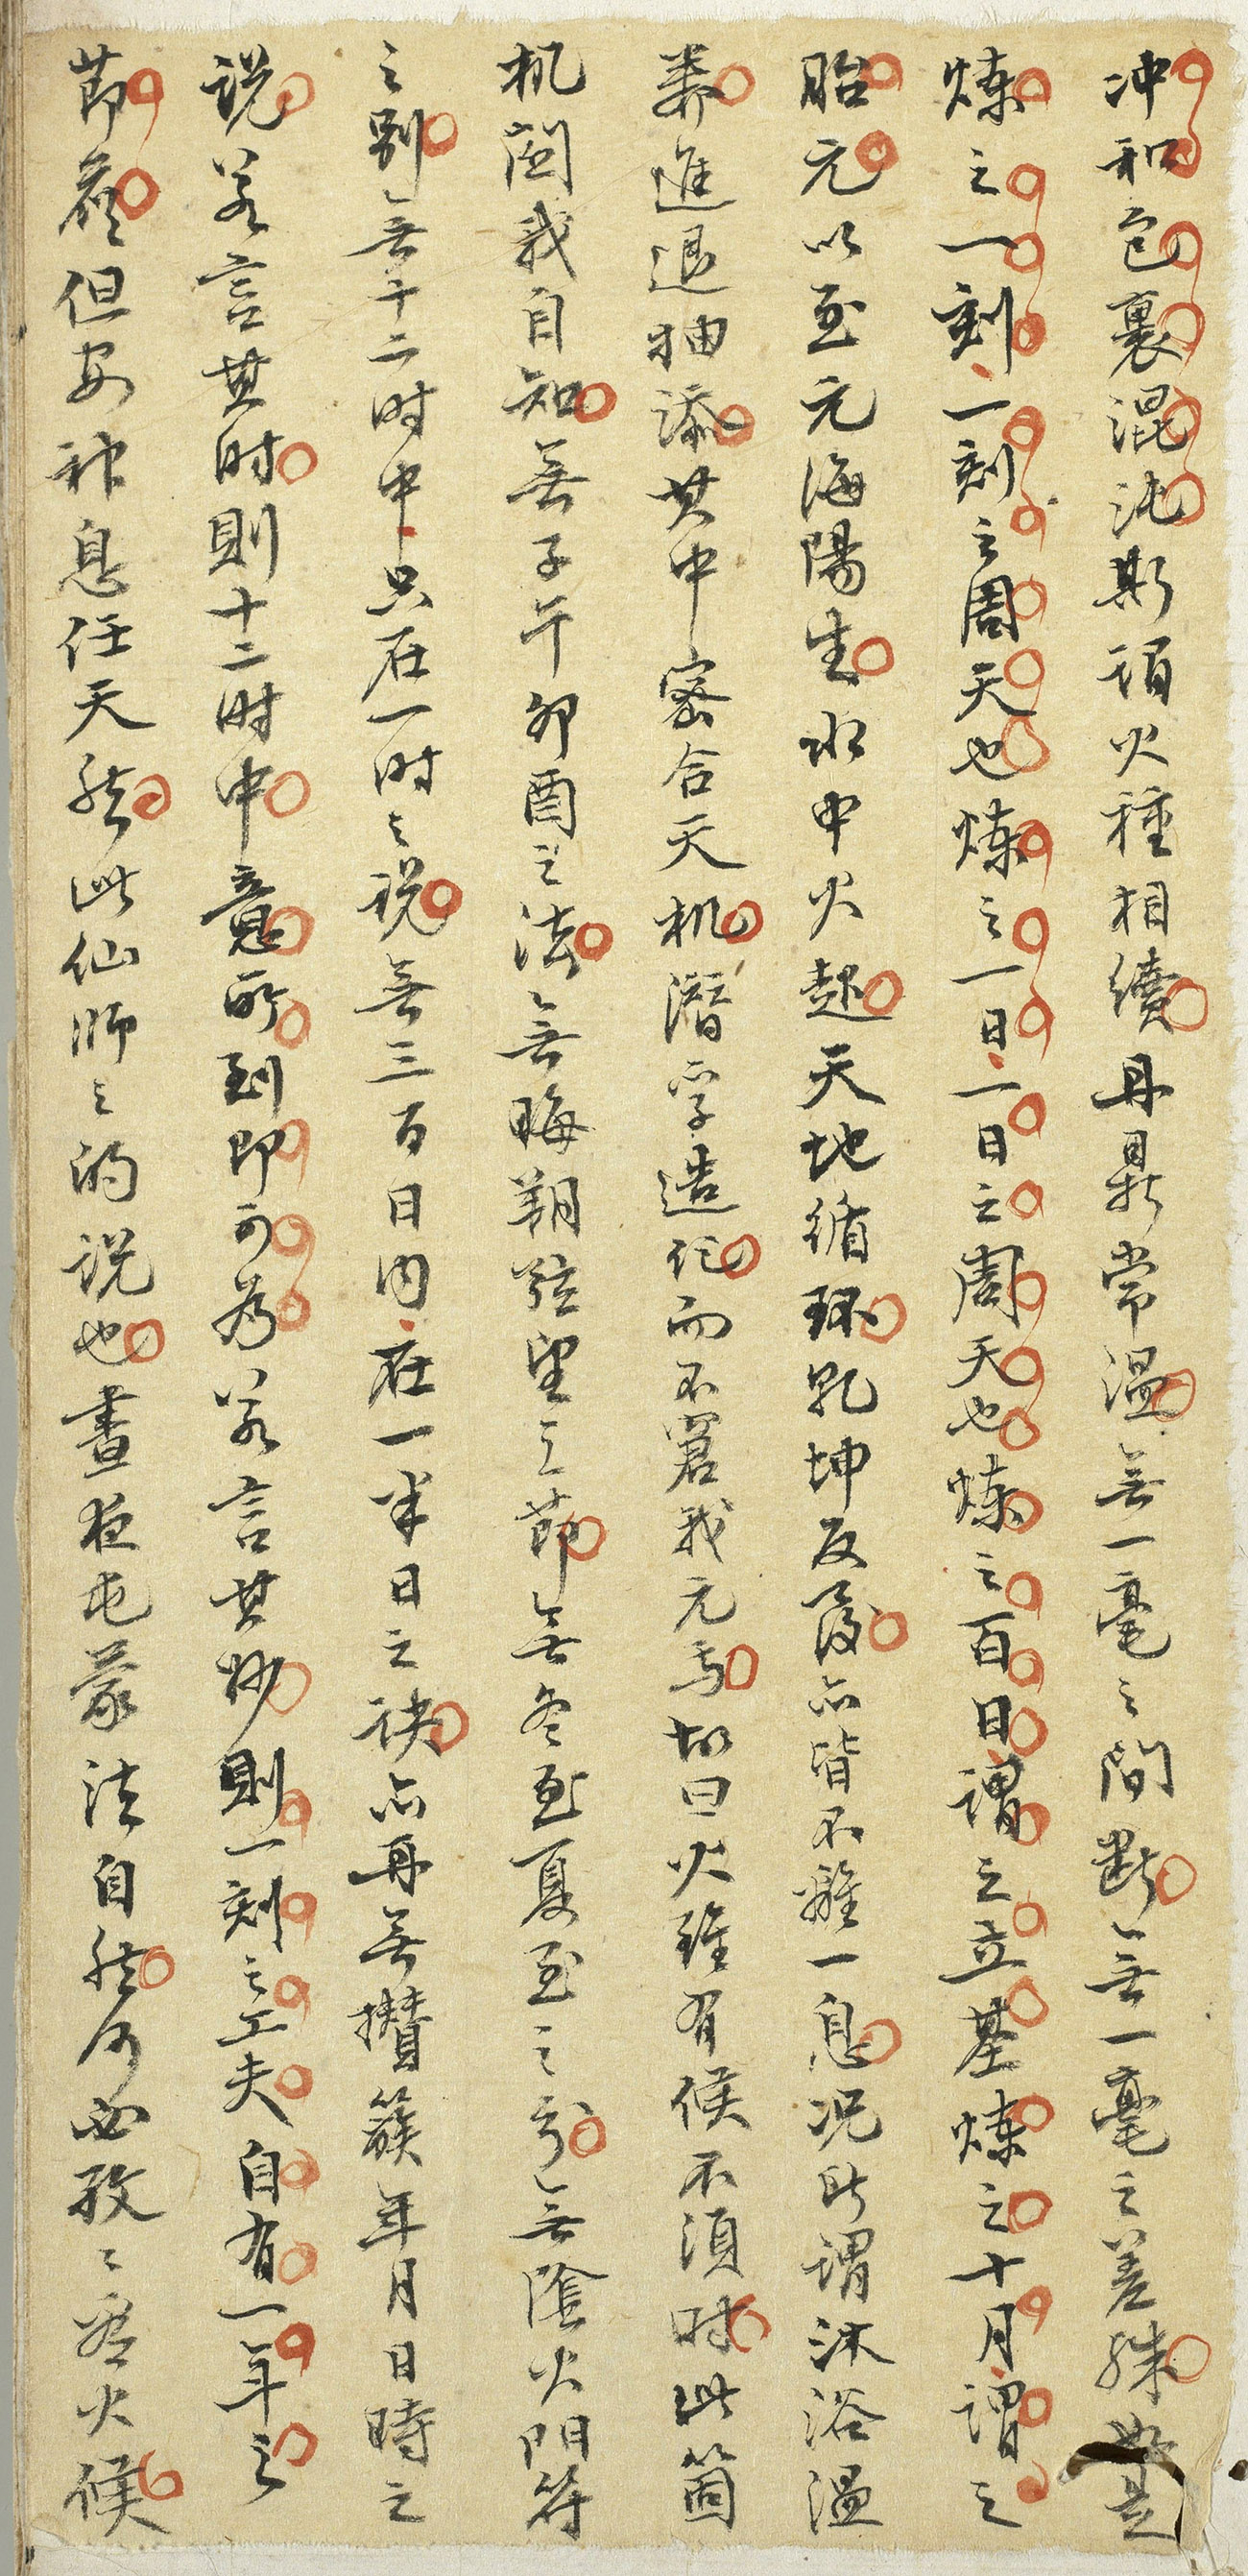 冲和包裹混沌斯須火種相續丹鼎常温無一毫之間斷無一毫之差殊如是
煉之一刻一刻之周天也煉之一日一日之周天也煉之百日謂之立基煉之十月謂之
胎元以至元海陽生水中火起天地循環乹坤反覆亦皆不離一息况所謂沐浴温
養進退抽添其中密合天机潛孚造化而不窘我元焉故曰火雖有候不須时此箇
机関我自知無子午卯酉之法無晦朔弦望之節無冬至夏至之分無陰火陽符
之别無十二时中只在一时之説無三百日内在一半日之訣亦再無攅簇年月日時之
説若言其时則十二时中意所到即可為若言其妙則一刻之工夫自有一年之
節候但安神息任天然此仙师之的説也晝夜屯蒙法自然何必孜孜看火候